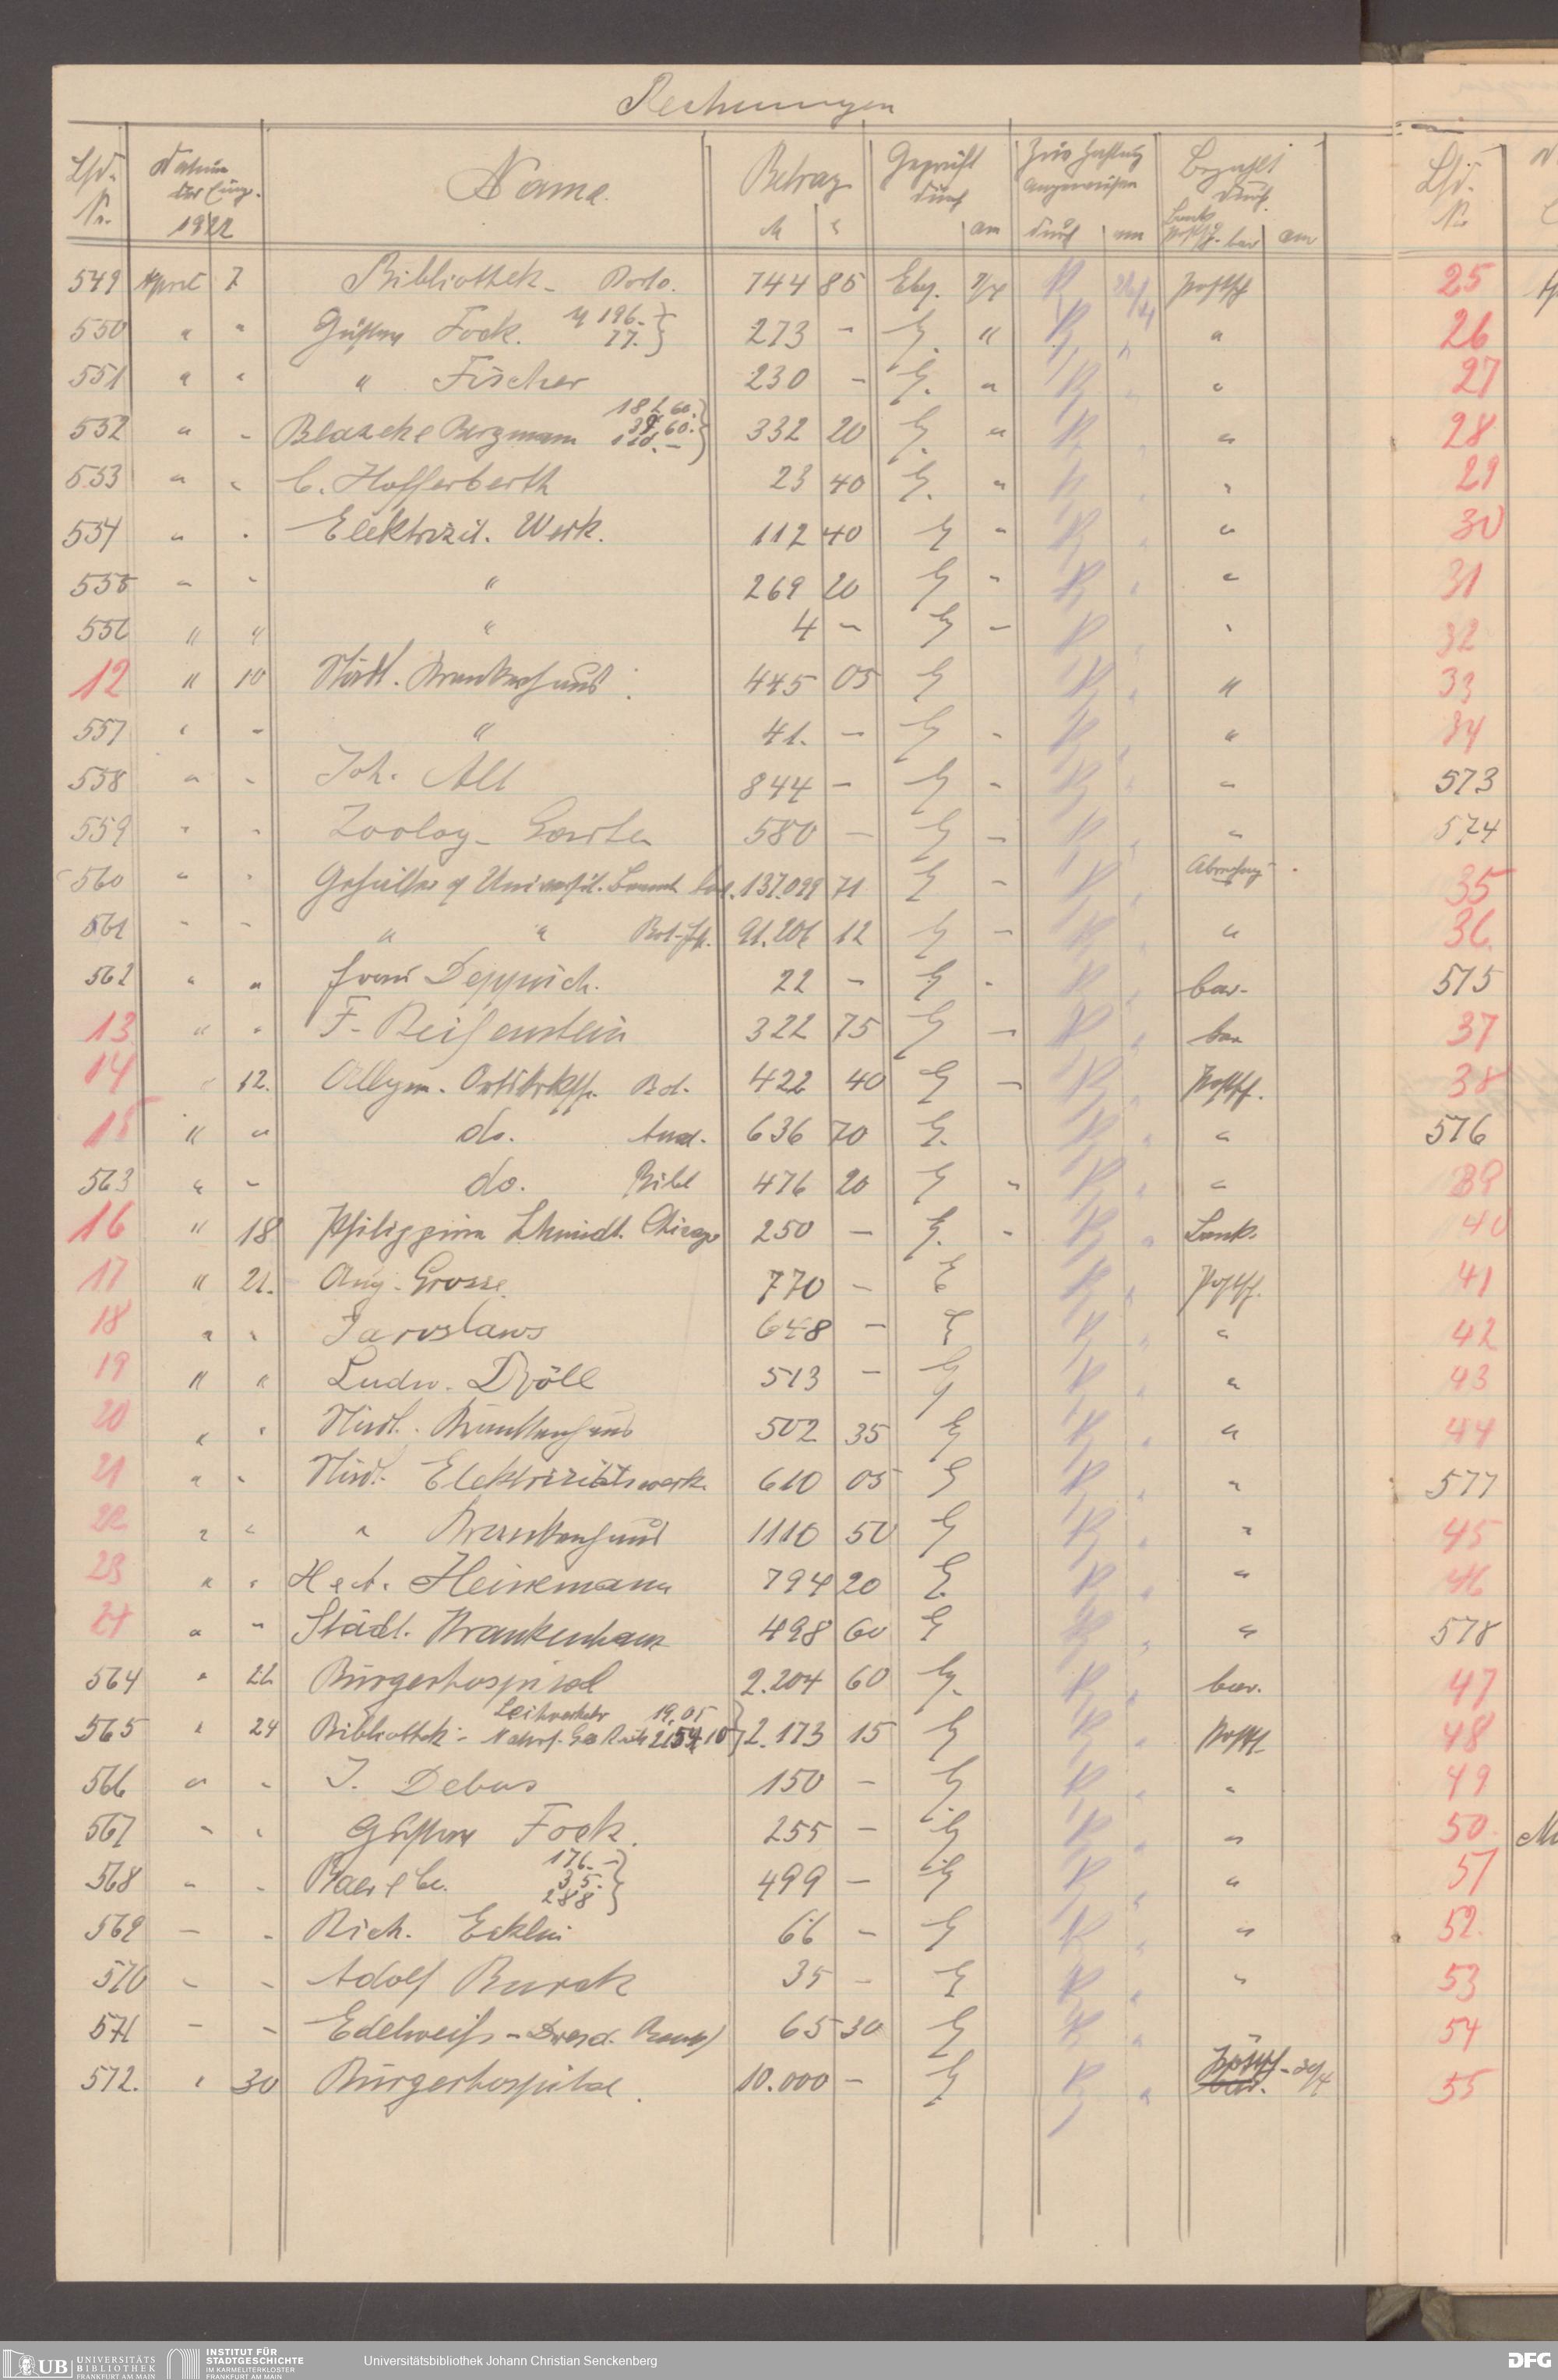 Rechnungen
Lfd. Nr. Datum der Eing. 1922 Name. Betrag M Geprüft durch am Zur Zahlung angewiesen durch am Bezahlt durch Bank Postsch. bar am Lfd. Nr.
549 April 7 Bibliothek - Porto. 744 85 Eby. 7/4 Postsch 25
550 " " Gustav Fock. 196.- 77.- } 273 - E. " " 26
551 " " " Fischer 230 - E. " " 27
552 " " Blazek & Bergmann 332 20 E. " " 28
553 " " C. Hofferberth 23 40 E. " " 29
554 " " Elektrizit. Werk. 112 40 E " " 30
555 " " " 269 20 E " " 31
556 " " " 4 - E - " 32
12 " 10 Städt. Krankenhaus 445 05 E " 33
557 " - " 41. - E - " 34
558 " - Joh. Alt 844 - E - - 573
559 " - Zoolog. Garten 580 - E - " 574
560 " " 137.099 71 E - 35
561 - - " " Bot. 91.206 12 E - " 36
562 " " 22 - E - bar. 575
13 " " F. Reifenstein 322 75 E - bar 37
14 " 12. Allgem. Ortskrkss. Bot. 422 40 E - Postsch. 38
15 " " do. 636 70 E. " 576
563 " - do. Bibl 476 20 E " " 39
16 " 18 Philippine Schmidt. Chicago 250 - E. - Bank. 40
17 " 21. Aug. Grosse. 770 - E Postsch. 41
18 " " Jaroslaws 648 - E " 42
19 " " Ludw. Dröll 513 - E " 43
20 " " Städt. Krankenhaus 502 35 E " 44
21 " " Städt. Elektrizitätswerk. 610 05 E " 577
22 " " " Krankenhaus 1110 50 E " 45
23 " " H & A. Heinemann 794 20 E. " 46
24 " " Städt. Krankenhaus 498 60 E " 578
564 " 22 Bürgerhospital 2.204 60 E. bar. 47
Leihverkehr 19,05
565 " 24 Bibliothek - Naturf. Ges. 2154 10 } 2.173 15 E Postsch. 48
566 " - J. Debus 150 - E " 49
567 " " Gustav Fock. 255 - E " 50
176.-
568 - - Baer & Co. 35.- } 499 - E " 51
288
569 - - Rich. Ecklin 66 - E " 52.
570 - - Adolf Burck 35 - E " 53
571 - - Edelweiß - Dresd. Bank) 65 30 E 54
572. " 30 Bürgerhospital. 10.000 - E Postsch - 29/4 bar. 55
UB UNIVERSITÄTS BIBLIOTHEK FRANKFURT AM MAIN
INSTITUT FÜR STADTGESCHICHTE IM KARMELITERKLOSTER FRANKFURT AM MAIN
Universitätsbibliothek Johann Christian Senckenberg
DFG